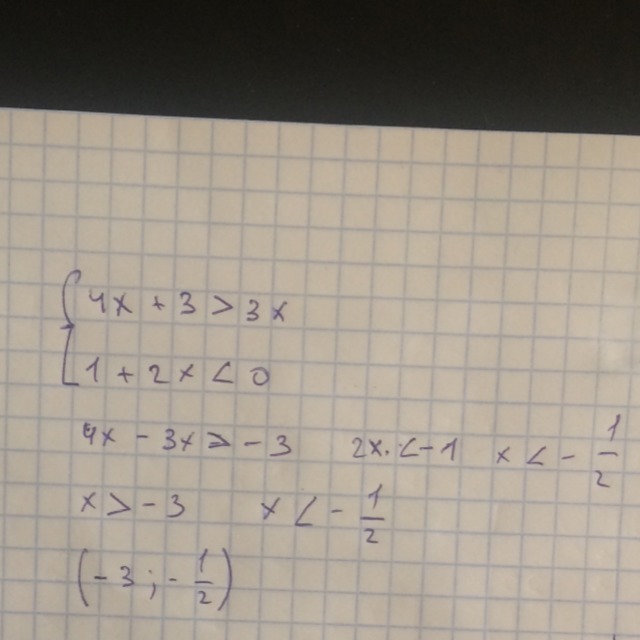 { 4x + 3 > 3x
1 + 2x < 0
4x - 3x > -3   2x < -1   x < - 1/2
x > -3   x < - 1/2
(-3 ; - 1/2)